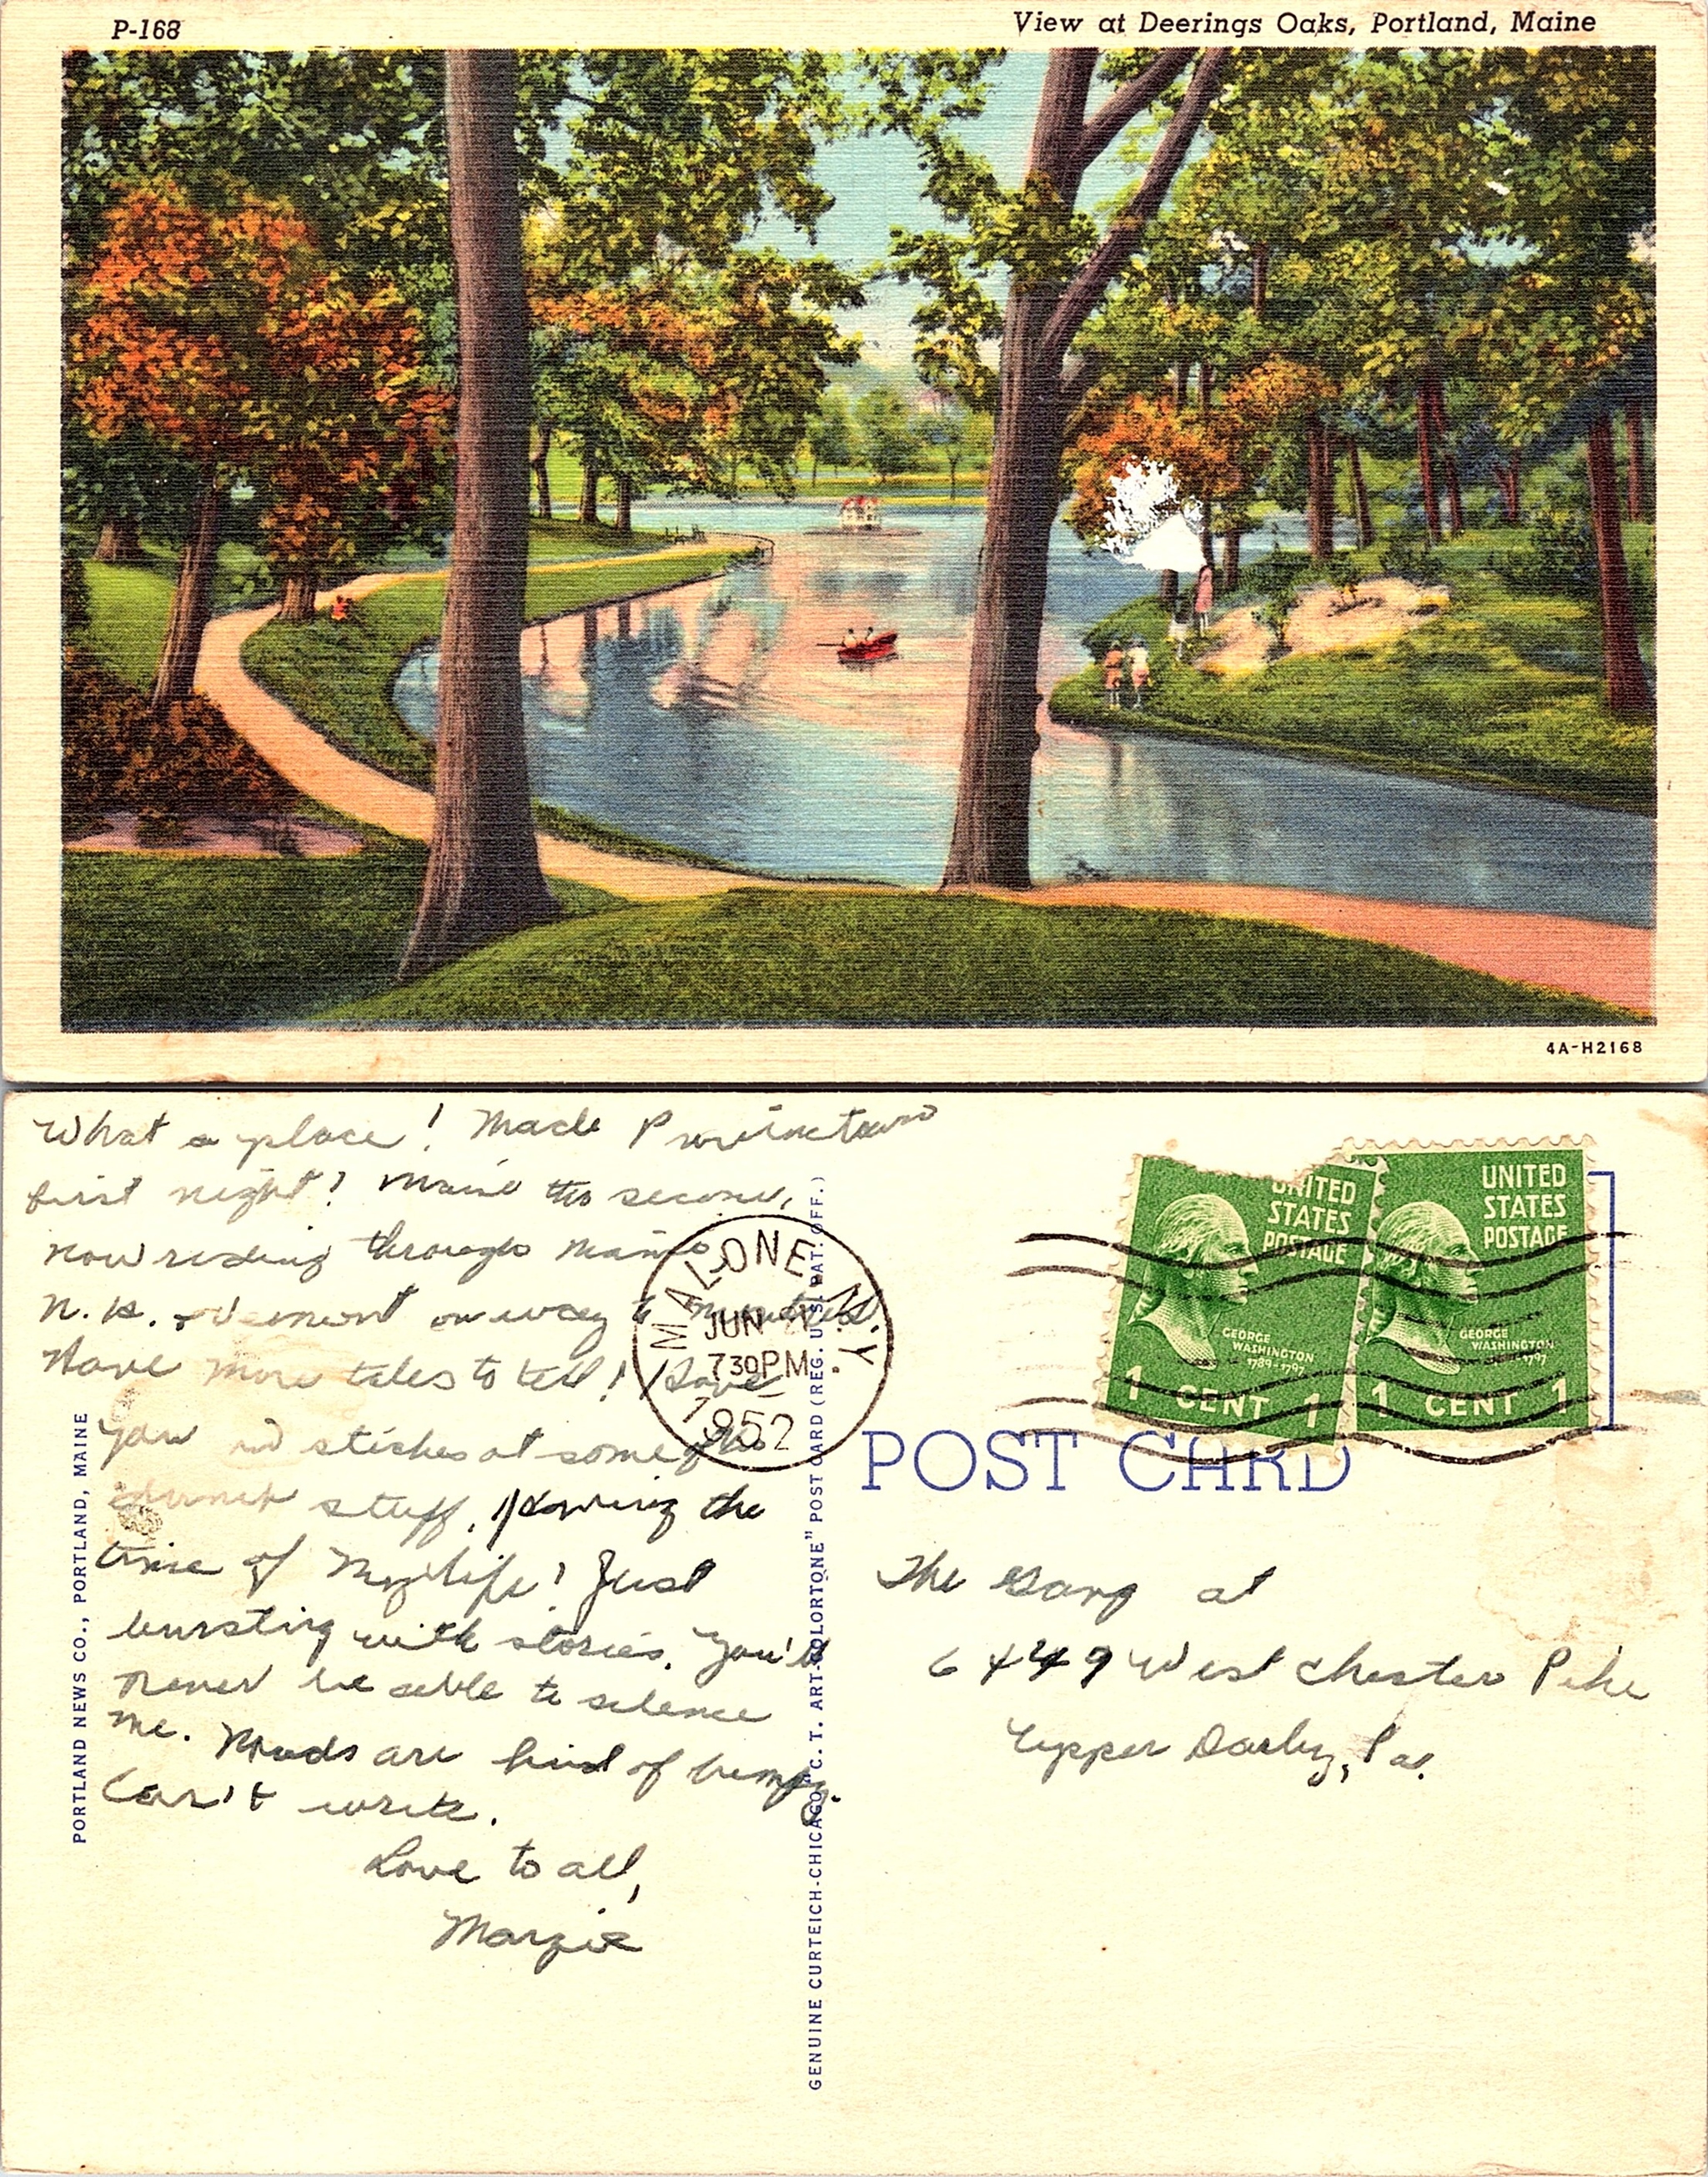 P-168
View at Deerings Oaks, Portland, Maine
4A-H2168
What a place! Made Provincetown
first night! Maine the second,
now riding through Maine
N.H. + Vermont on way to
Have more tales to tell! Have
you in stiches at some of the
stuff. Having the
time of my life! Just
bursting with stories. You'll
never be able to silence
me. Roads are kind of bumpy.
Can't write.
Love to all,
Margie
MALONE N.Y.
JUN
730PM
1952
PORTLAND NEWS CO., PORTLAND, MAINE
GENUINE CURTEICH-CHICAGO "C. T. ART-COLORTONE" POST CARD (REG. U.S. PAT. OFF.)
UNITED
STATES
POSTAGE
GEORGE
WASHINGTON
1789-1797
1 CENT 1
UNITED
STATES
POSTAGE
GEORGE
WASHINGTON
1797
1 CENT 1
POST CARD
The Gang at
6449 West Chester Pike
Upper Darby, Pa.